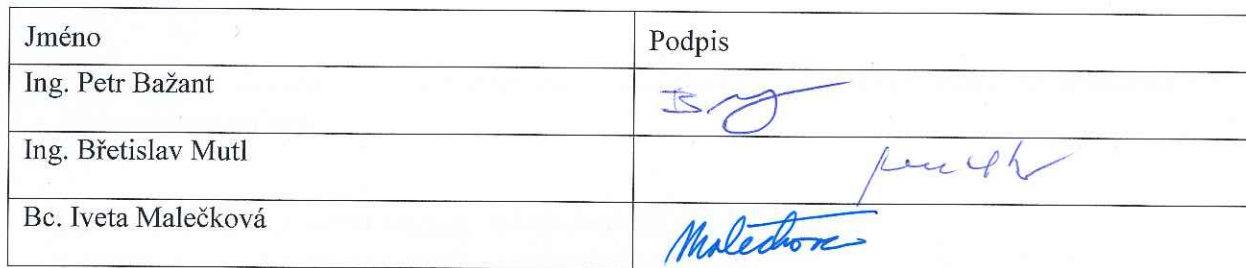 Jméno Podpis
Ing. Petr Bažant
Ing. Břetislav Mutl
Bc. Iveta Malečková